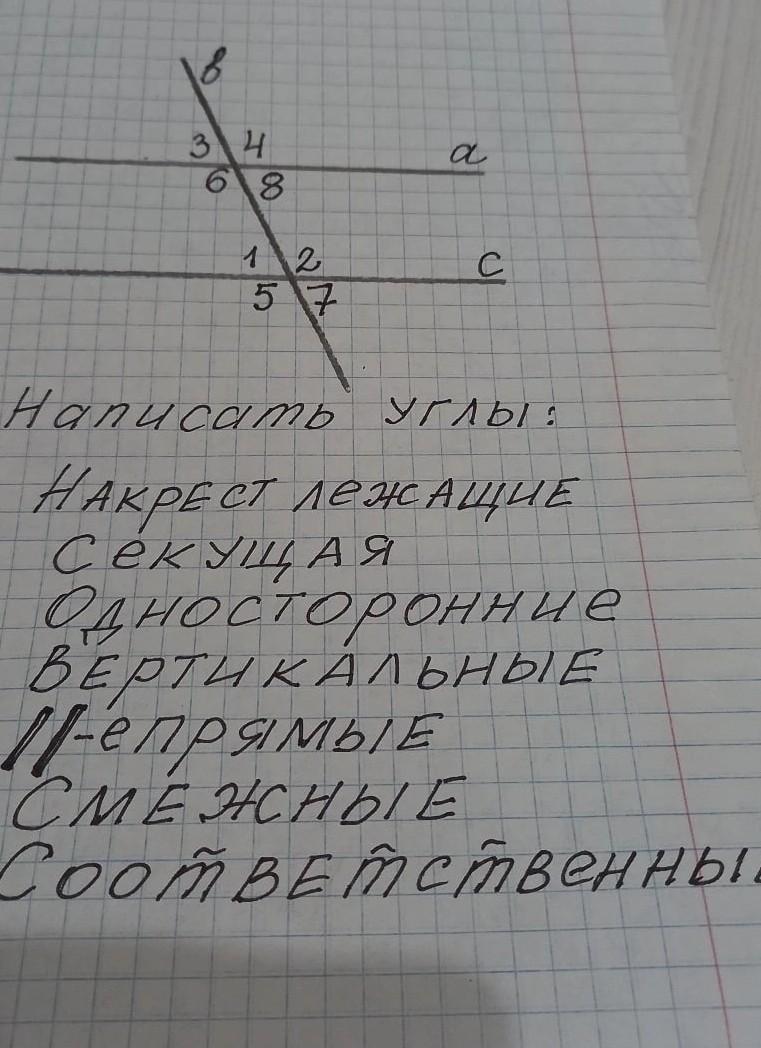 в
3 4 а
6 8
1 2 с
5 7
Написать углы:
Накрест лежащие
Секущая
Односторонние
Вертикальные
||-е прямые
Смежные
Соответственны